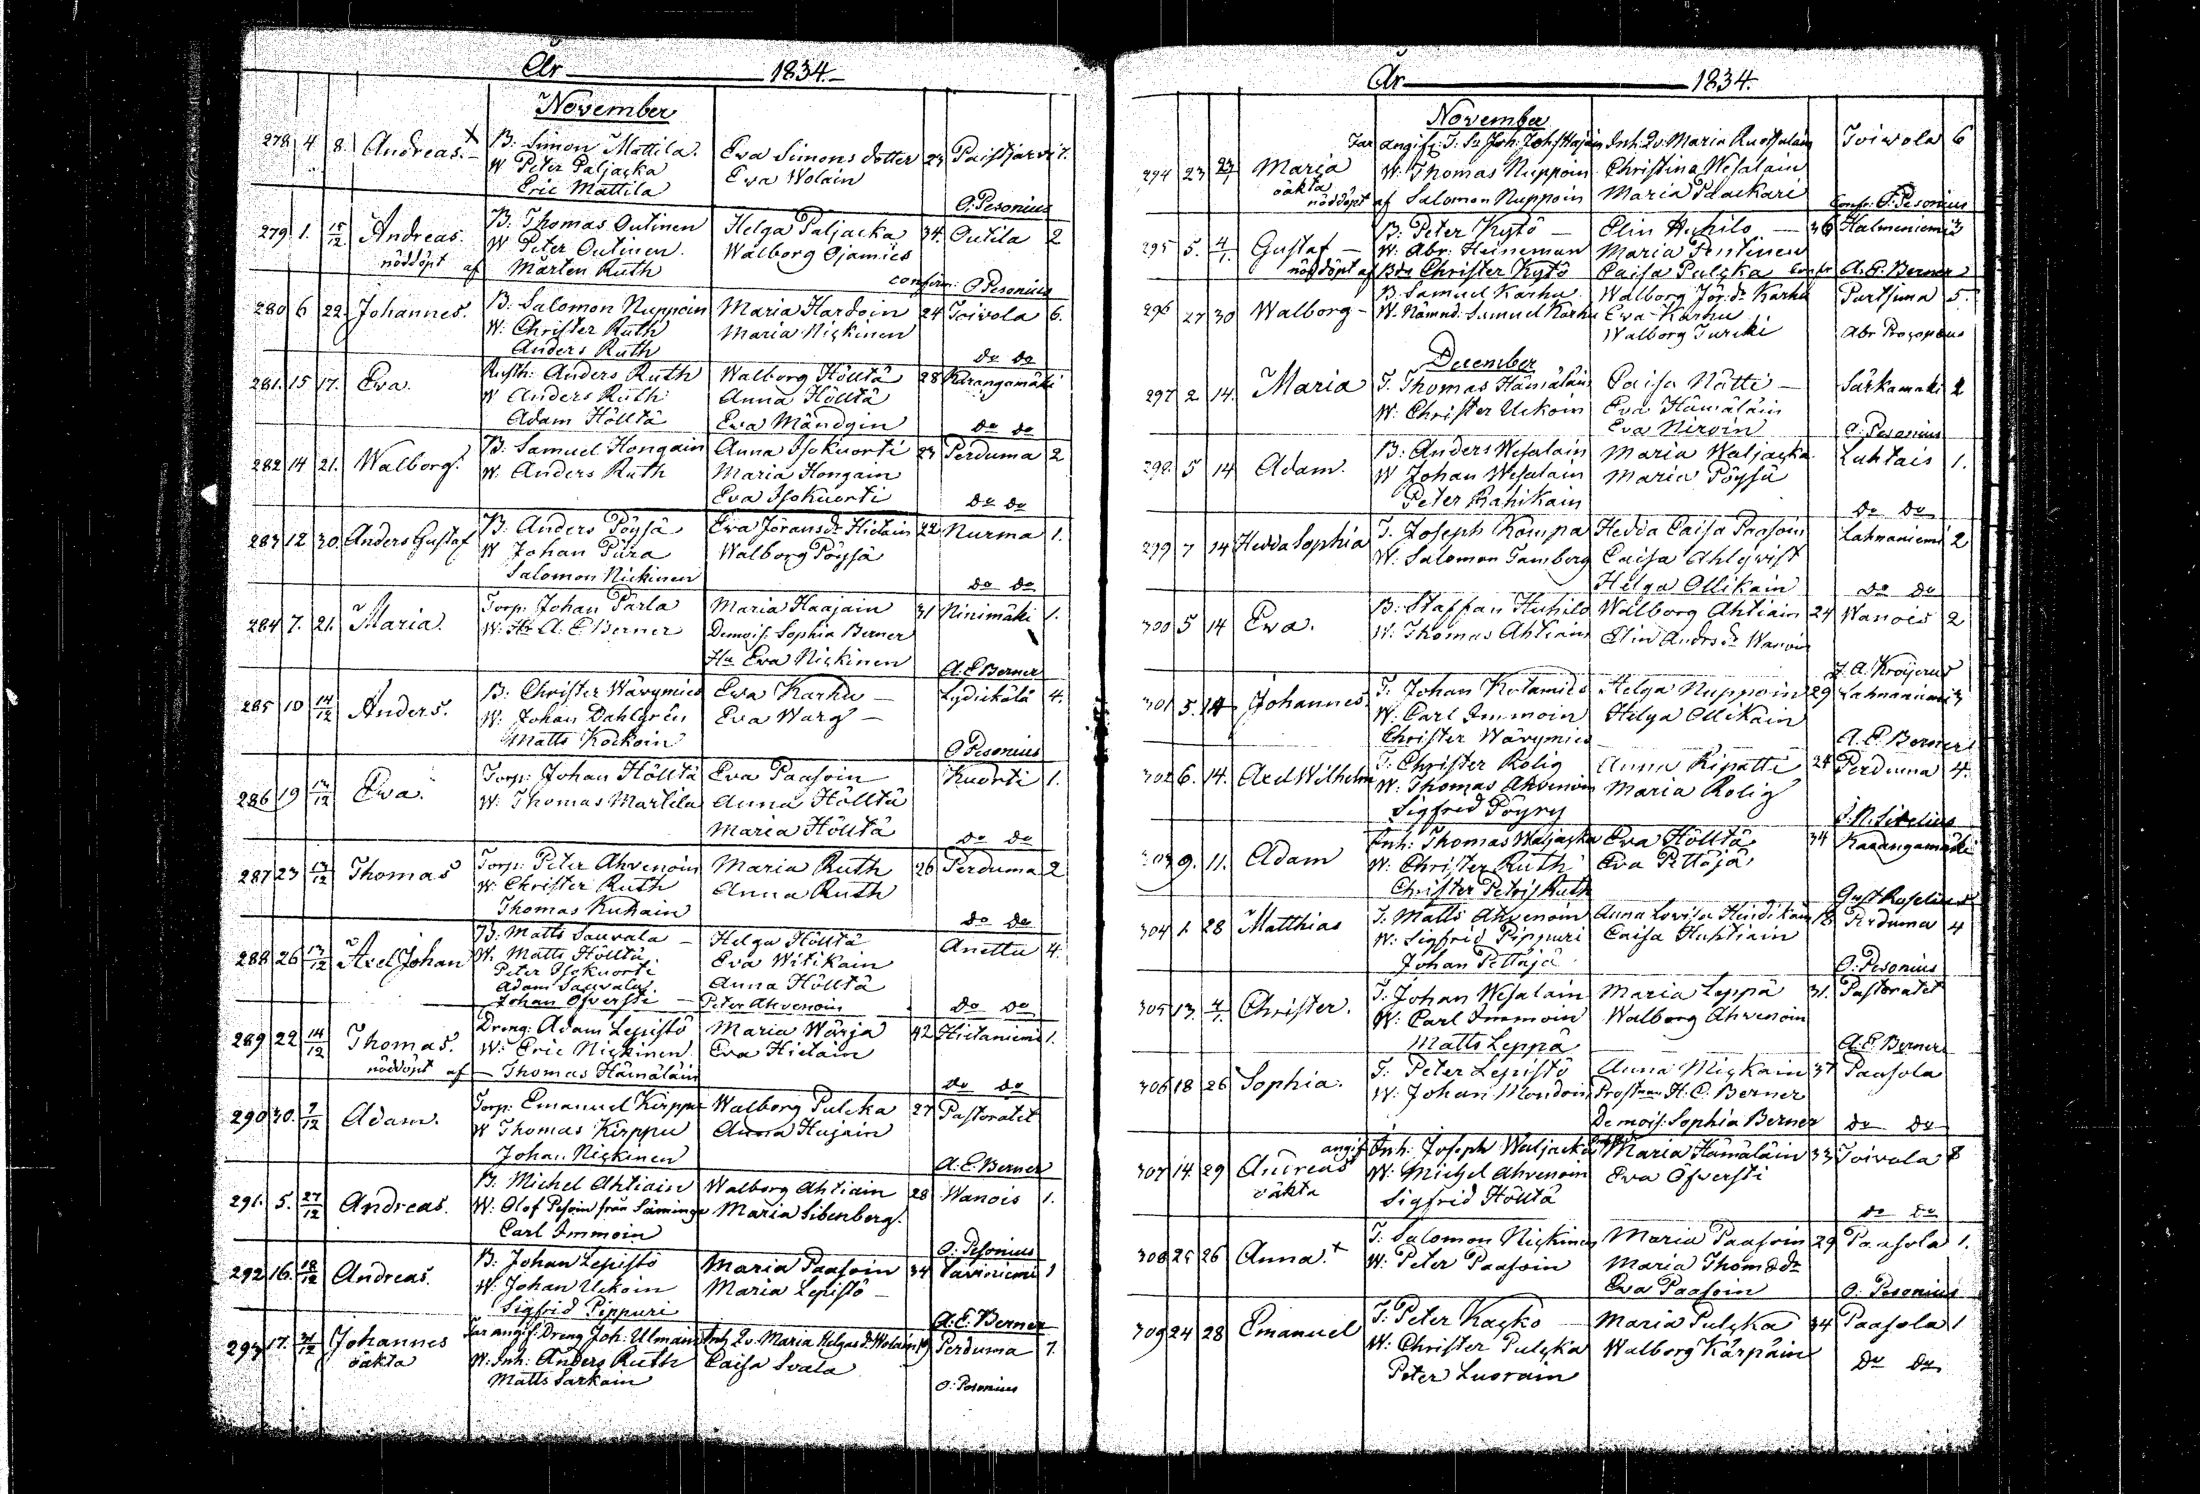 År 1834.
November
278 4 8. Andreas. B: Simon Mattila. Eva Simons dotter 23 Paistjärvi 7.
W Peter Paljacka Eva Wolain
Eric Mattila
O: Pesonius
279 1. 15/12 Andreas. B: Thomas Outinen Helga Paljacka 34. Outila 2
W Peter Outinen. Walborg Ojamies
nöddöpt af Mårten Ruth
confirm: O Pesonius
280 6 22. Johannes. B: Salomon Nuppoin Maria Hardoin 24 Toivola 6.
W: Christer Ruth Maria Nickinen
Anders Ruth
do do
281. 15 17. Eva. Rusth: Anders Ruth Walborg Hölltä 28 Karangamäki
W Anders Ruth Anna Hölltä
Adam Hölltä Eva Mändyin
do do
282 14 21. Walborg. B: Samuel Hongain Anna Isokuorti 23 Perduma 2
W: Anders Ruth Maria Hongain
Eva Isokuorti
do do
283 12 30. Anders Gustaf B: Anders Pöysä Eva Jöransdr Hietain 22 Nurma 1.
W Johan Pura Walborg Pöysä
Salomon Nickinen
do do
284 7. 21. Maria. Torp: Johan Pärla Maria Haajain 31 Ninimäki 1.
W: Hr A. E. Berner Demois: Sophia Berner
Hu Eva Nickinen
A. E. Berner
285 10 14/12 Anders. B: Christer Wärymies Eva Karhu Lydikälä 4.
W: Johan Dahlgrén Eva Warg
Matts Kockoin
O Pesonius
286 19 13/12 Eva. Torp: Johan Hölltä Eva Paasoin Kuorti 1.
W: Thomas Martila Anna Hölltä
Maria Hölltä
do do
287 23 13/12 Thomas Torp: Peter Ahvenoin Maria Ruth 26 Perduma 2
W Christer Ruth Anna Ruth
Thomas Kukain
do do
288 26 13/12 Axel Johan B: Matts Sauvala Helga Hölltä Anettu 4.
W. Matts Hölltä Eva Witikain
Peter Isokuorti Anna Hölltä
Adam Sauvala
Johan Öfversti Peter Ahvenoin
do do
289 22 14/12 Thomas. Dreng: Adam Lepistö Maria Wärja 42 Hietaniemi 1.
W: Eric Nickinen. Eva Hietain
nöddöpt af Thomas Hämäläin
do do
290 30. 7/12 Adam. Torp: Emanuel Kirppu Walborg Pulcka 27 Pastoratet
W Thomas Kirppu Anna Hujain
Johan Nickinen
A. E. Berner
291. 5. 27/12 Andreas. B. Michel Ahtiain Walborg Ahtiain 28 Wanois 1.
W: Olof Pesoin från Säminge Maria Sibenberg.
Carl Immoin
O: Pesonius
292 16. 18/12 Andreas. B: Johan Lepistö Maria Paasoin 34 Saviniemi 1
W: Johan Uckoin Maria Lepistö
Sigfrid Pippuri
A. E. Berner
293 17. 31/12 Johannes Far angif: Dreng Joh: Ulmain Inh: Qv: Maria Helgasdr Wolain 19 Perduma 7.
oäkta W: Inh: Anders Ruth Caisa Svala
Matts Sarkain
O: Pesonius
År 1834.
November
294 23 Maria Far angif: T. Sn Joh: Joh:s Hajain Inh: Qv. Maria Ruotsalain Toivola 6
W: Thomas Nuppoin Christina Wesalain
oäkta
nöddöpt af Salomon Nuppoin Maria Paackari
Conf: O. Pesonius
295 5. 4/1. Gustaf B: Peter Kytö Elin Huhilo 36 Halmeniemi 3
W: Abr: Heineman Maria Pentinen
nöddöpt af Bdn Christer Kytö Caisa Pulcka Confir A. E. Berner
296 27 30 Walborg B. Samuel Karhu Walborg Jör: dr Karhu Purtsima 5.
W. Nämnd: Samuel Karhu Eva Karhu
Walborg Turcki Abr Procopæus
December
297 2 14. Maria T. Thomas Hämäläin Caisa Nätti Särkamäki 2
W: Christer Uckoin Eva Hämäläin
Eva Niroin O: Pesonius
298. 5 14 Adam. B: Anders Wesalain Maria Waljacka Luhtais 1.
W Johan Wesalain Maria Pöysä
Peter Rahikain
do do
299 7 14 Hedda Sophia T. Joseph Kämpa Hedda Caisa Paasoin Lahnaniemi 2
W: Salomon Tamberg Caisa Ahlqvist
Helga Ollikain
do do
300 5 14 Eva. B: Staffan Huhilo Walborg Ahtiain 24 Wanois 2
W: Thomas Ahtiain Elin Andrs dr Wanoin
J. A. Kröyerus
301 5. 14 Johannes. T: Johan Kotamies Helga Nuppoin 29 Lahnaniemi 3
W. Carl Immoin Helga Ollikain
Christer Wärymies
A. E. Berner
302 6. 14. Axel Wilhelm T: Christer Rolig Anna Ripatti 24 Perduma 4.
W: Thomas Ahvenoin Maria Rolig
Sigfred Pöyry
J. N. Sirelius
303 9. 11. Adam Inh: Thomas Waljacka Eva Hölltä 34 Karangamäki
W: Christer Ruth Eva Pettäjä
Christer Peters Ruth
Gust Roselius
304 1. 28 Matthias T: Matts Ahvenoin Anna Lovisa Heidikain 18 Perduma 4
W: Sigfrid Pippuri Caisa Huhtiain
Johan Pettäjä
O: Pesonius
305 13. 4/1. Christer. T: Johan Wesalain Maria Leppä 31. Pastoratet
W: Carl Immoin Walborg Ahvenoin
Matts Leppä
A. E. Berner
306 18 26 Sophia. T: Peter Lepistö Anna Mickain 37 Paasola
W: Johan Mondoin Prostinnan H. C. Berner
Demois: Sophia Berner do do
307 14. 29 Andreas angif Inh: Joseph Waljacka Maria Hämäläin 33 Toivola 8
oäkta W: Michel Ahvenoin Eva Öfversti
Sigfrid Hölltä
do do
308 25 26 Anna. T: Salomon Nickinen Maria Paasoin 29 Paasola 1.
W: Peter Paasoin Maria Thom dr
Eva Paasoin O: Pesonius
309 24 28 Emanuel T: Peter Kacko Maria Pulcka 34 Paasola 1
W: Christer Pulcka Walborg Kärpäin
Peter Luorain do do